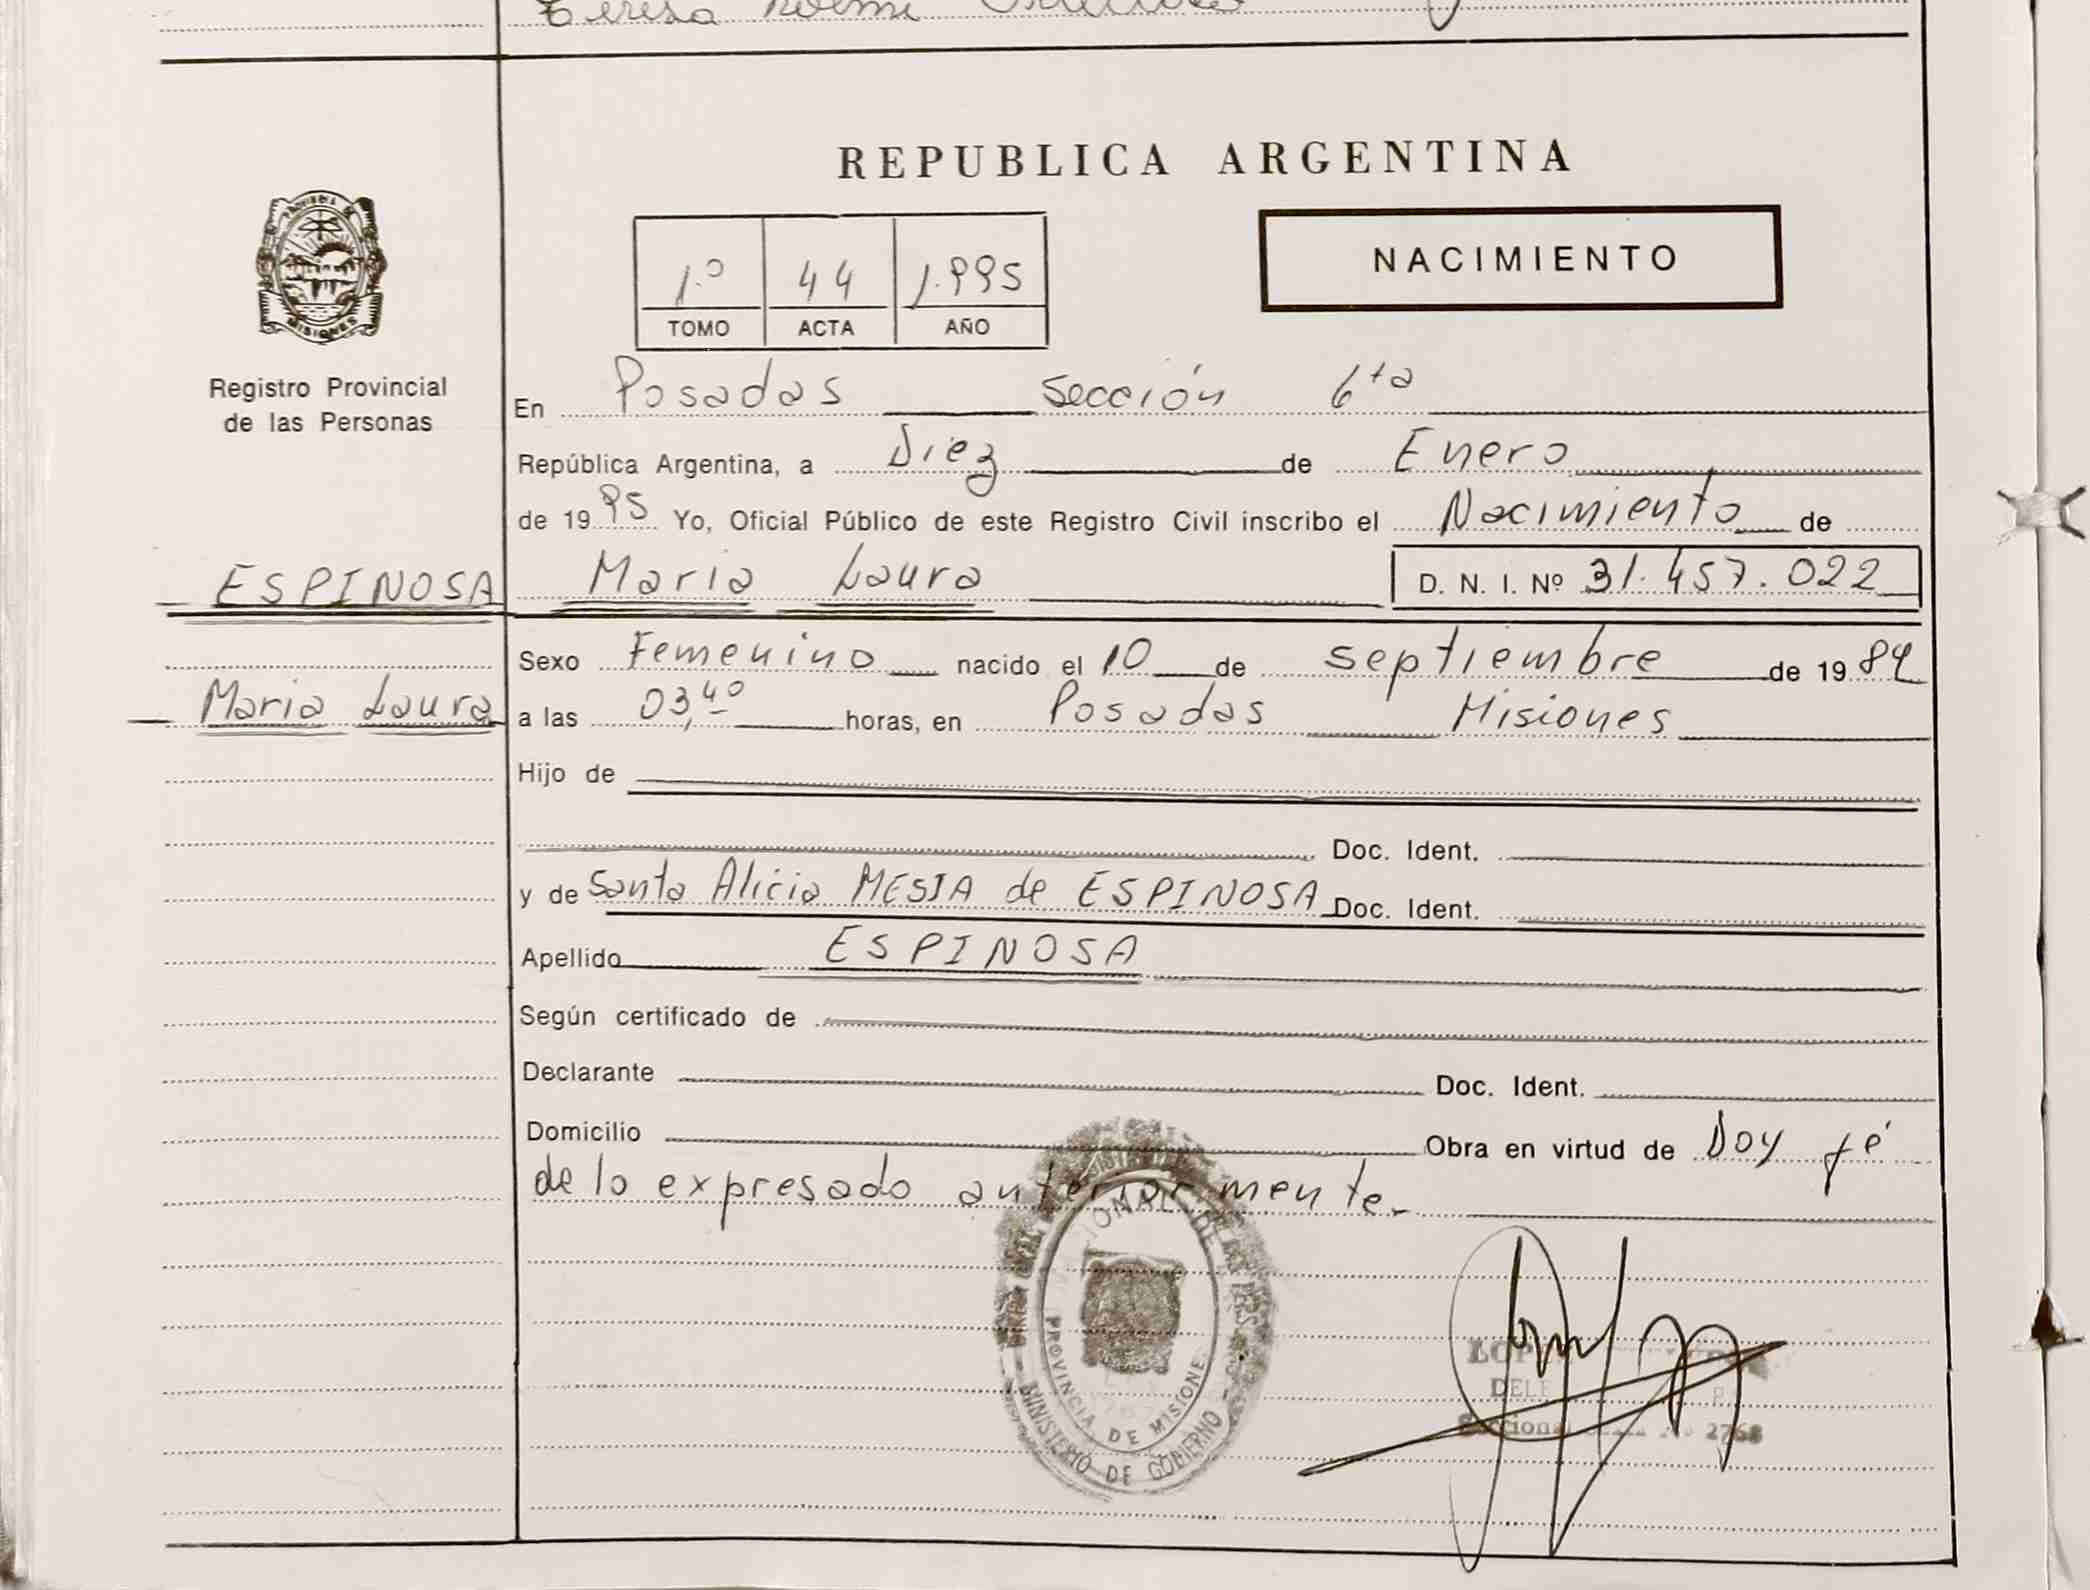 Teresa Noemi
REPUBLICA ARGENTINA
NACIMIENTO
1.º 44 1.995
TOMO ACTA AÑO
PROVINCIA DE
MISIONES
Registro Provincial
de las Personas
En Posadas Sección 6ta
República Argentina, a Diez de Enero
de 1995 Yo, Oficial Público de este Registro Civil inscribo el Nacimiento de
ESPINOSA Maria Laura D. N. I. Nº 31.457.022
Sexo Femenino nacido el 10 de septiembre de 1984
Maria Laura a las 03,40 horas, en Posadas Misiones
Hijo de
Doc. Ident.
y de Santa Alicia MESIA de ESPINOSA Doc. Ident.
Apellido ESPINOSA
Según certificado de
Declarante Doc. Ident.
Domicilio Obra en virtud de Doy fé
de lo expresado anteriormente.
DE LAS PERS
PROVINCIA DE MISIONES
MINISTERIO DE GOBIERNO
2768